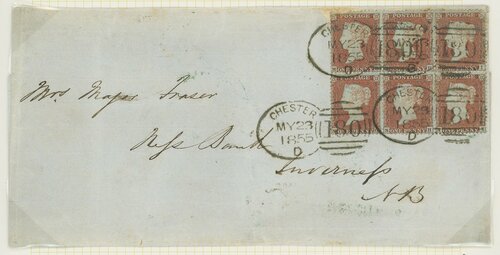 POSTAGE POSTAGE POSTAGE
CHESTER
MY 23
D
180
180
CHESTER
MY 23
1855
D
180
MY 23
D
180
Mrs Major Fraser
Ness Bank
Inverness
NB